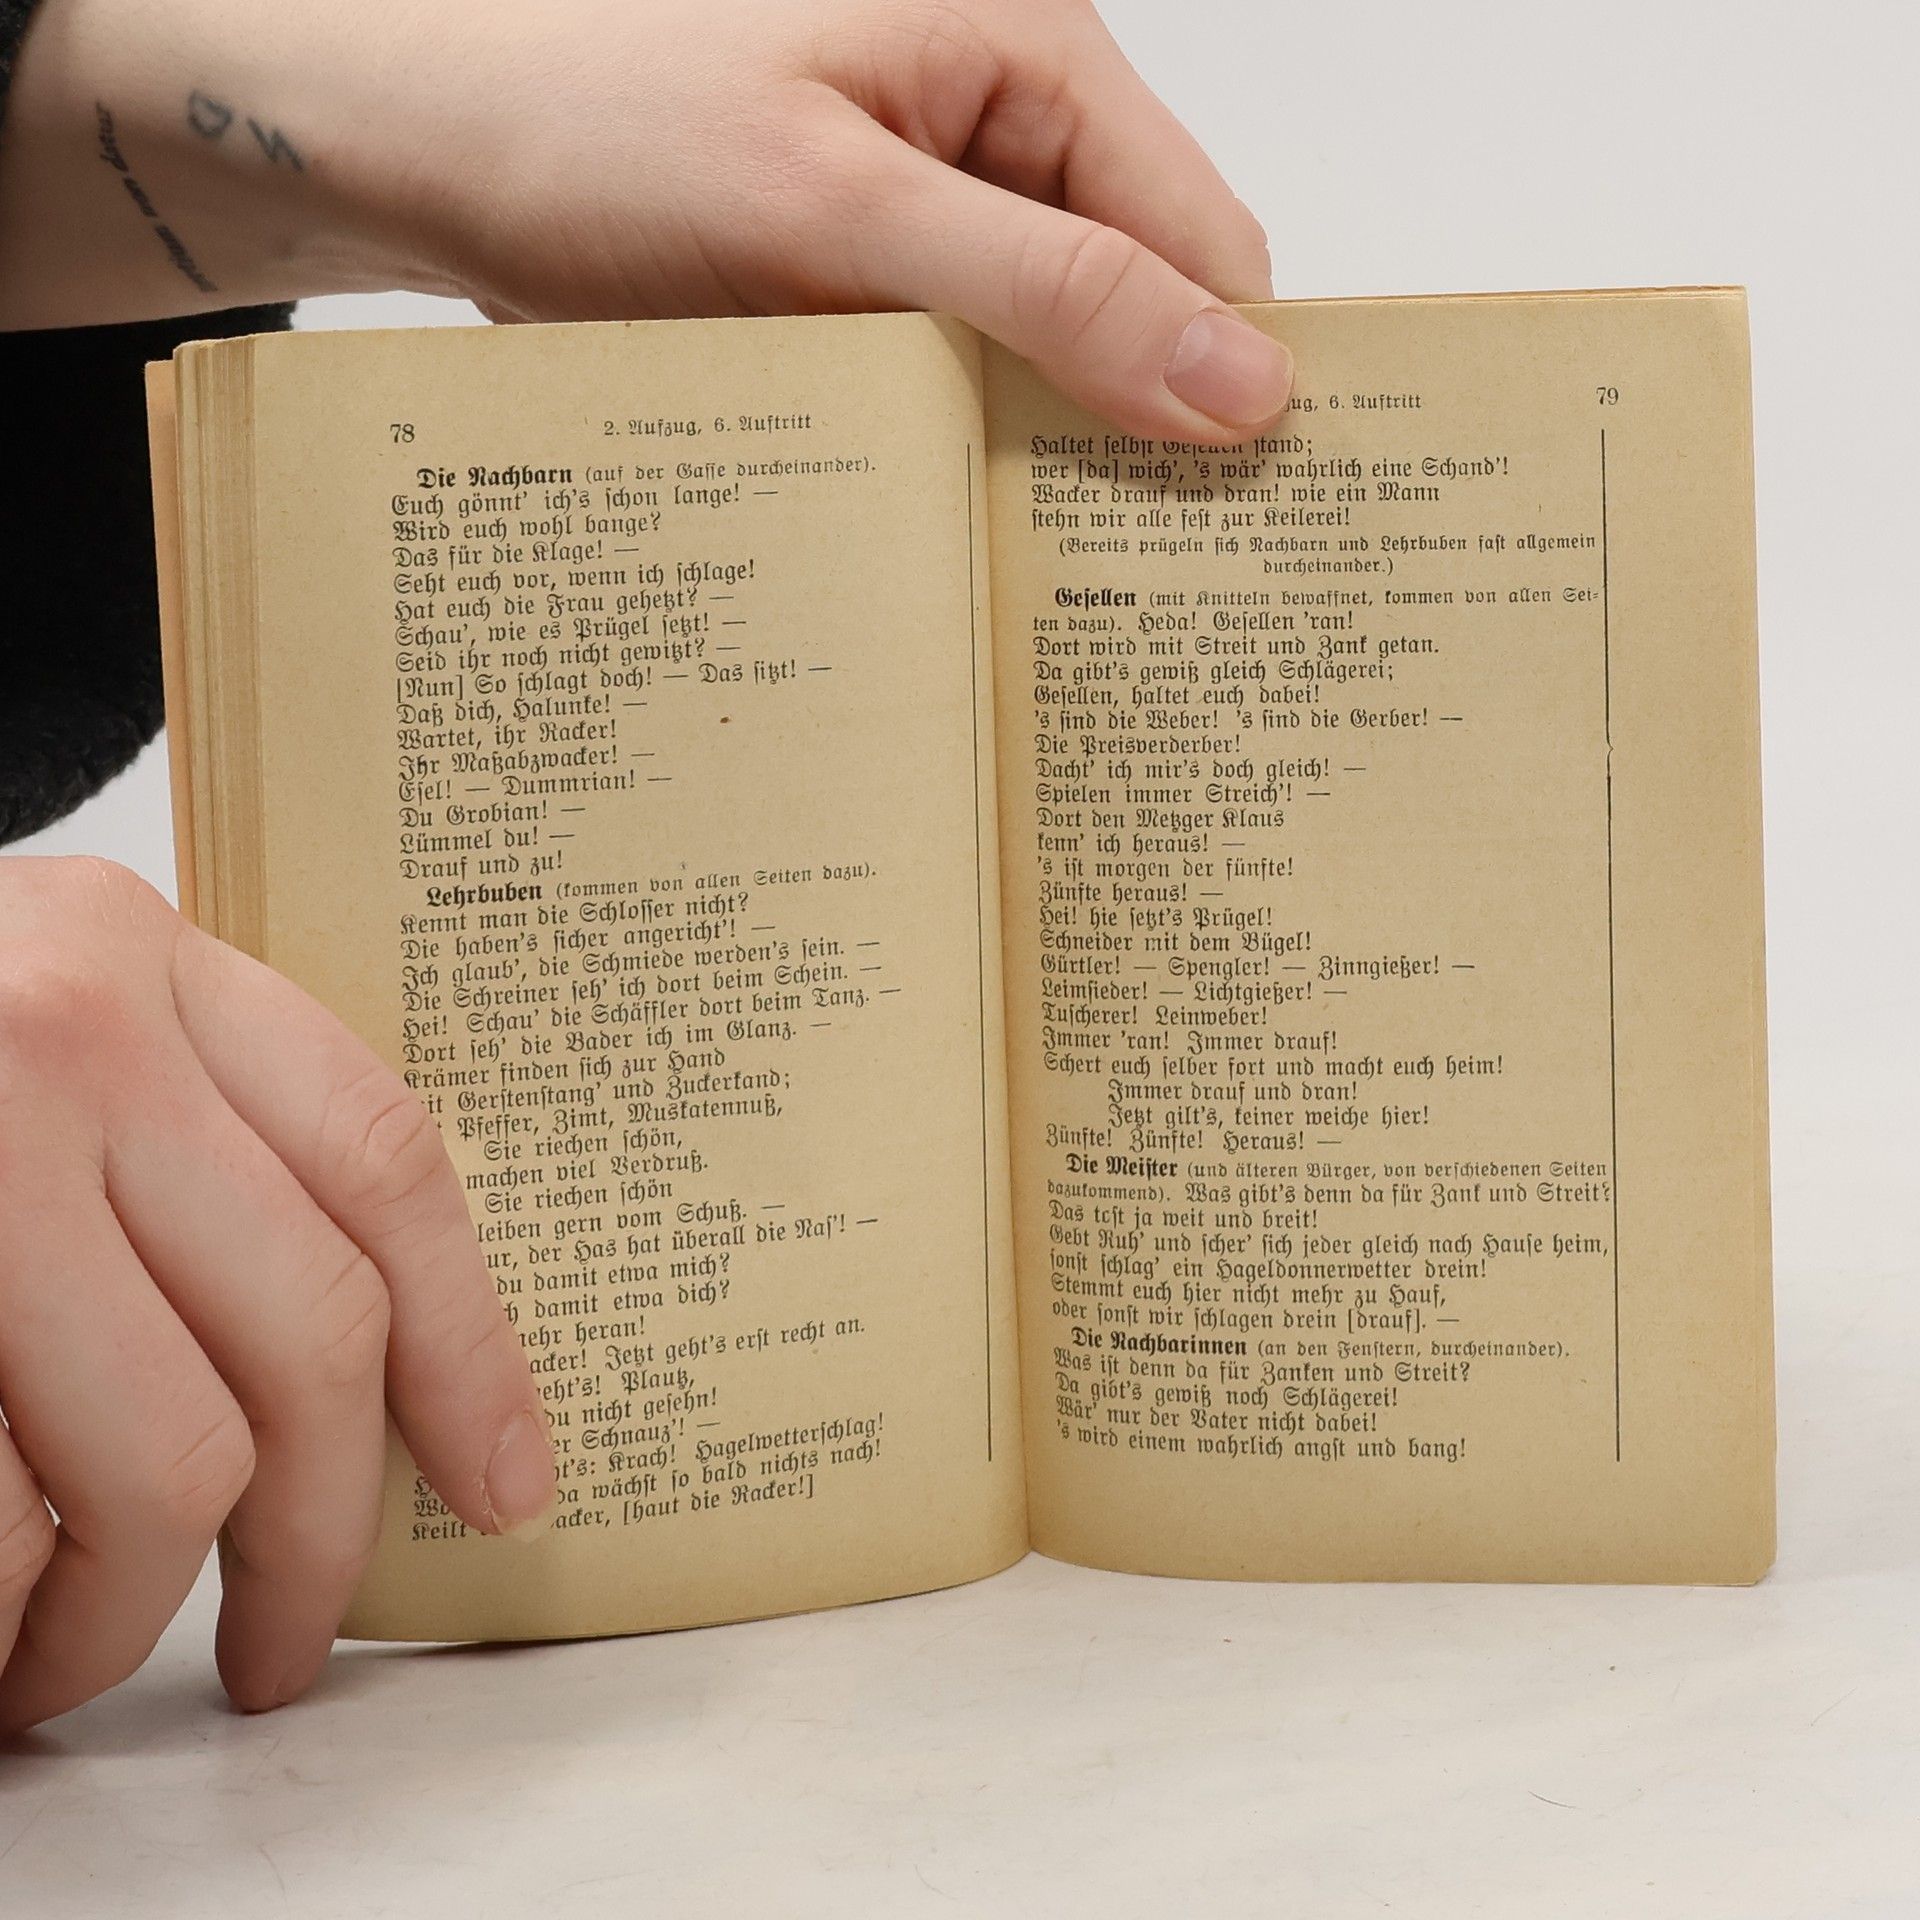 tertium non datur
78
2. Aufzug, 6. Auftritt
Die Nachbarn (auf der Gasse durcheinander).
Euch gönnt' ich's schon lange! —
Wird euch wohl bange?
Das für die Klage! —
Seht euch vor, wenn ich schlage!
Hat euch die Frau gehetzt? —
Schau', wie es Prügel setzt! —
Seid ihr noch nicht gewitzt? —
[Nun] So schlagt doch! — Das sitzt! —
Daß dich, Halunke! —
Wartet, ihr Racker!
Ihr Maßabzwacker! —
Esel! — Dummrian! —
Du Grobian! —
Lümmel du! —
Drauf und zu!
Lehrbuben (kommen von allen Seiten dazu).
Kennt man die Schlosser nicht?
Die haben's sicher angericht'! —
Ich glaub', die Schmiede werden's sein. —
Die Schreiner seh' ich dort beim Schein. —
Hei! Schau' die Schäffler dort beim Tanz. —
Dort seh' die Bader ich im Glanz. —
Krämer finden sich zur Hand
Gerstenstang' und Zuckerkand;
Pfeffer, Zimt, Muskatennuß,
Sie riechen schön,
machen viel Verdruß.
Sie riechen schön
leiben gern vom Schuß. —
ur, der Has hat überall die Nas'! —
du damit etwa mich?
damit etwa dich?
heran!
acker! Jetzt geht's erst recht an.
eht's! Plautz,
du nicht gesehn!
er Schnauz'! —
t's: Krach! Hagelwetterschlag!
da wächst so bald nichts nach!
Keilt acker, [haut die Racker!]
ug, 6. Auftritt
79
Haltet selbst Gesellen stand;
wer [da] wich', 's wär' wahrlich eine Schand'!
Wacker drauf und dran! wie ein Mann
stehn wir alle fest zur Keilerei!
(Bereits prügeln sich Nachbarn und Lehrbuben fast allgemein
durcheinander.)
Gesellen (mit Knitteln bewaffnet, kommen von allen Sei-
ten dazu). Heda! Gesellen 'ran!
Dort wird mit Streit und Zank getan.
Da gibt's gewiß gleich Schlägerei;
Gesellen, haltet euch dabei!
's sind die Weber! 's sind die Gerber! —
Die Preisverderber!
Dacht' ich mir's doch gleich! —
Spielen immer Streich'! —
Dort den Metzger Klaus
kenn' ich heraus! —
's ist morgen der fünfte!
Zünfte heraus! —
Hei! hie setzt's Prügel!
Schneider mit dem Bügel!
Gürtler! — Spengler! — Zinngießer! —
Leimsieder! — Lichtgießer! —
Tuscherer! Leinweber!
Immer 'ran! Immer drauf!
Schert euch selber fort und macht euch heim!
Immer drauf und dran!
Jetzt gilt's, keiner weiche hier!
Zünfte! Zünfte! Heraus! —
Die Meister (und älteren Bürger, von verschiedenen Seiten
dazukommend). Was gibt's denn da für Zank und Streit?
Das tost ja weit und breit!
Gebt Ruh' und scher' sich jeder gleich nach Hause heim,
sonst schlag' ein Hageldonnerwetter drein!
Stemmt euch hier nicht mehr zu Hauf,
oder sonst wir schlagen drein [drauf]. —
Die Nachbarinnen (an den Fenstern, durcheinander).
Was ist denn da für Zanken und Streit?
Da gibt's gewiß noch Schlägerei!
Wär' nur der Vater nicht dabei!
's wird einem wahrlich angst und bang!